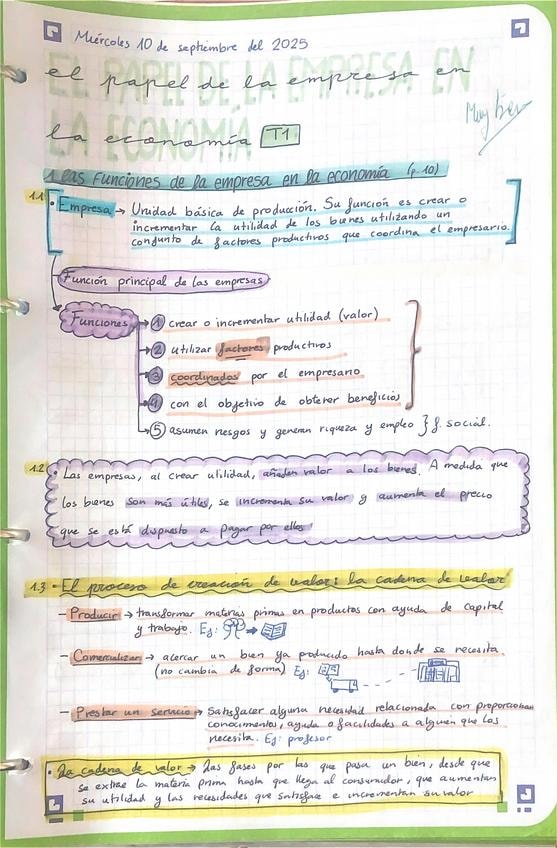 Miércoles 10 de septiembre del 2025
EL PAPEL DE LA EMPRESA EN
el papel de la empresa en
LA ECONOMÍA
la economía T1
Muy bien
1. las funciones de la empresa en la economía (p.10)
1.1 · Empresa → Unidad básica de producción. Su función es crear o
incrementar la utilidad de los bienes utilizando un
conjunto de factores productivos que coordina el empresario.
Función principal de las empresas
Funciones → ① crear o incrementar utilidad (valor)
② utilizar factores productivos
③ coordinados por el empresario
④ con el objetivo de obtener beneficios
⑤ asumen riesgos y generan riqueza y empleo } f. social.
1.2 · Las empresas, al crear utilidad, añaden valor a los bienes. A medida que
los bienes son más útiles, se incrementa su valor y aumenta el precio
que se está dispuesto a pagar por ellos
1.3 · El proceso de creación de valor: la cadena de valor
- Producir → transformar materias primas en productos con ayuda de capital
y trabajo. Ej:
- Comercializar → acercar un bien ya producido hasta donde se necesita
(no cambia de forma) Ej:
- Prestar un servicio → Satisfacer alguna necesidad relacionada con proporcionar
conocimientos, ayuda o facilidades a alguien que los
necesita. Ej: profesor
· La cadena de valor → Las fases por las que pasa un bien, desde que
se extrae la materia prima hasta que llega al consumidor, que aumentan
su utilidad y las necesidades que satisface e incrementan su valor